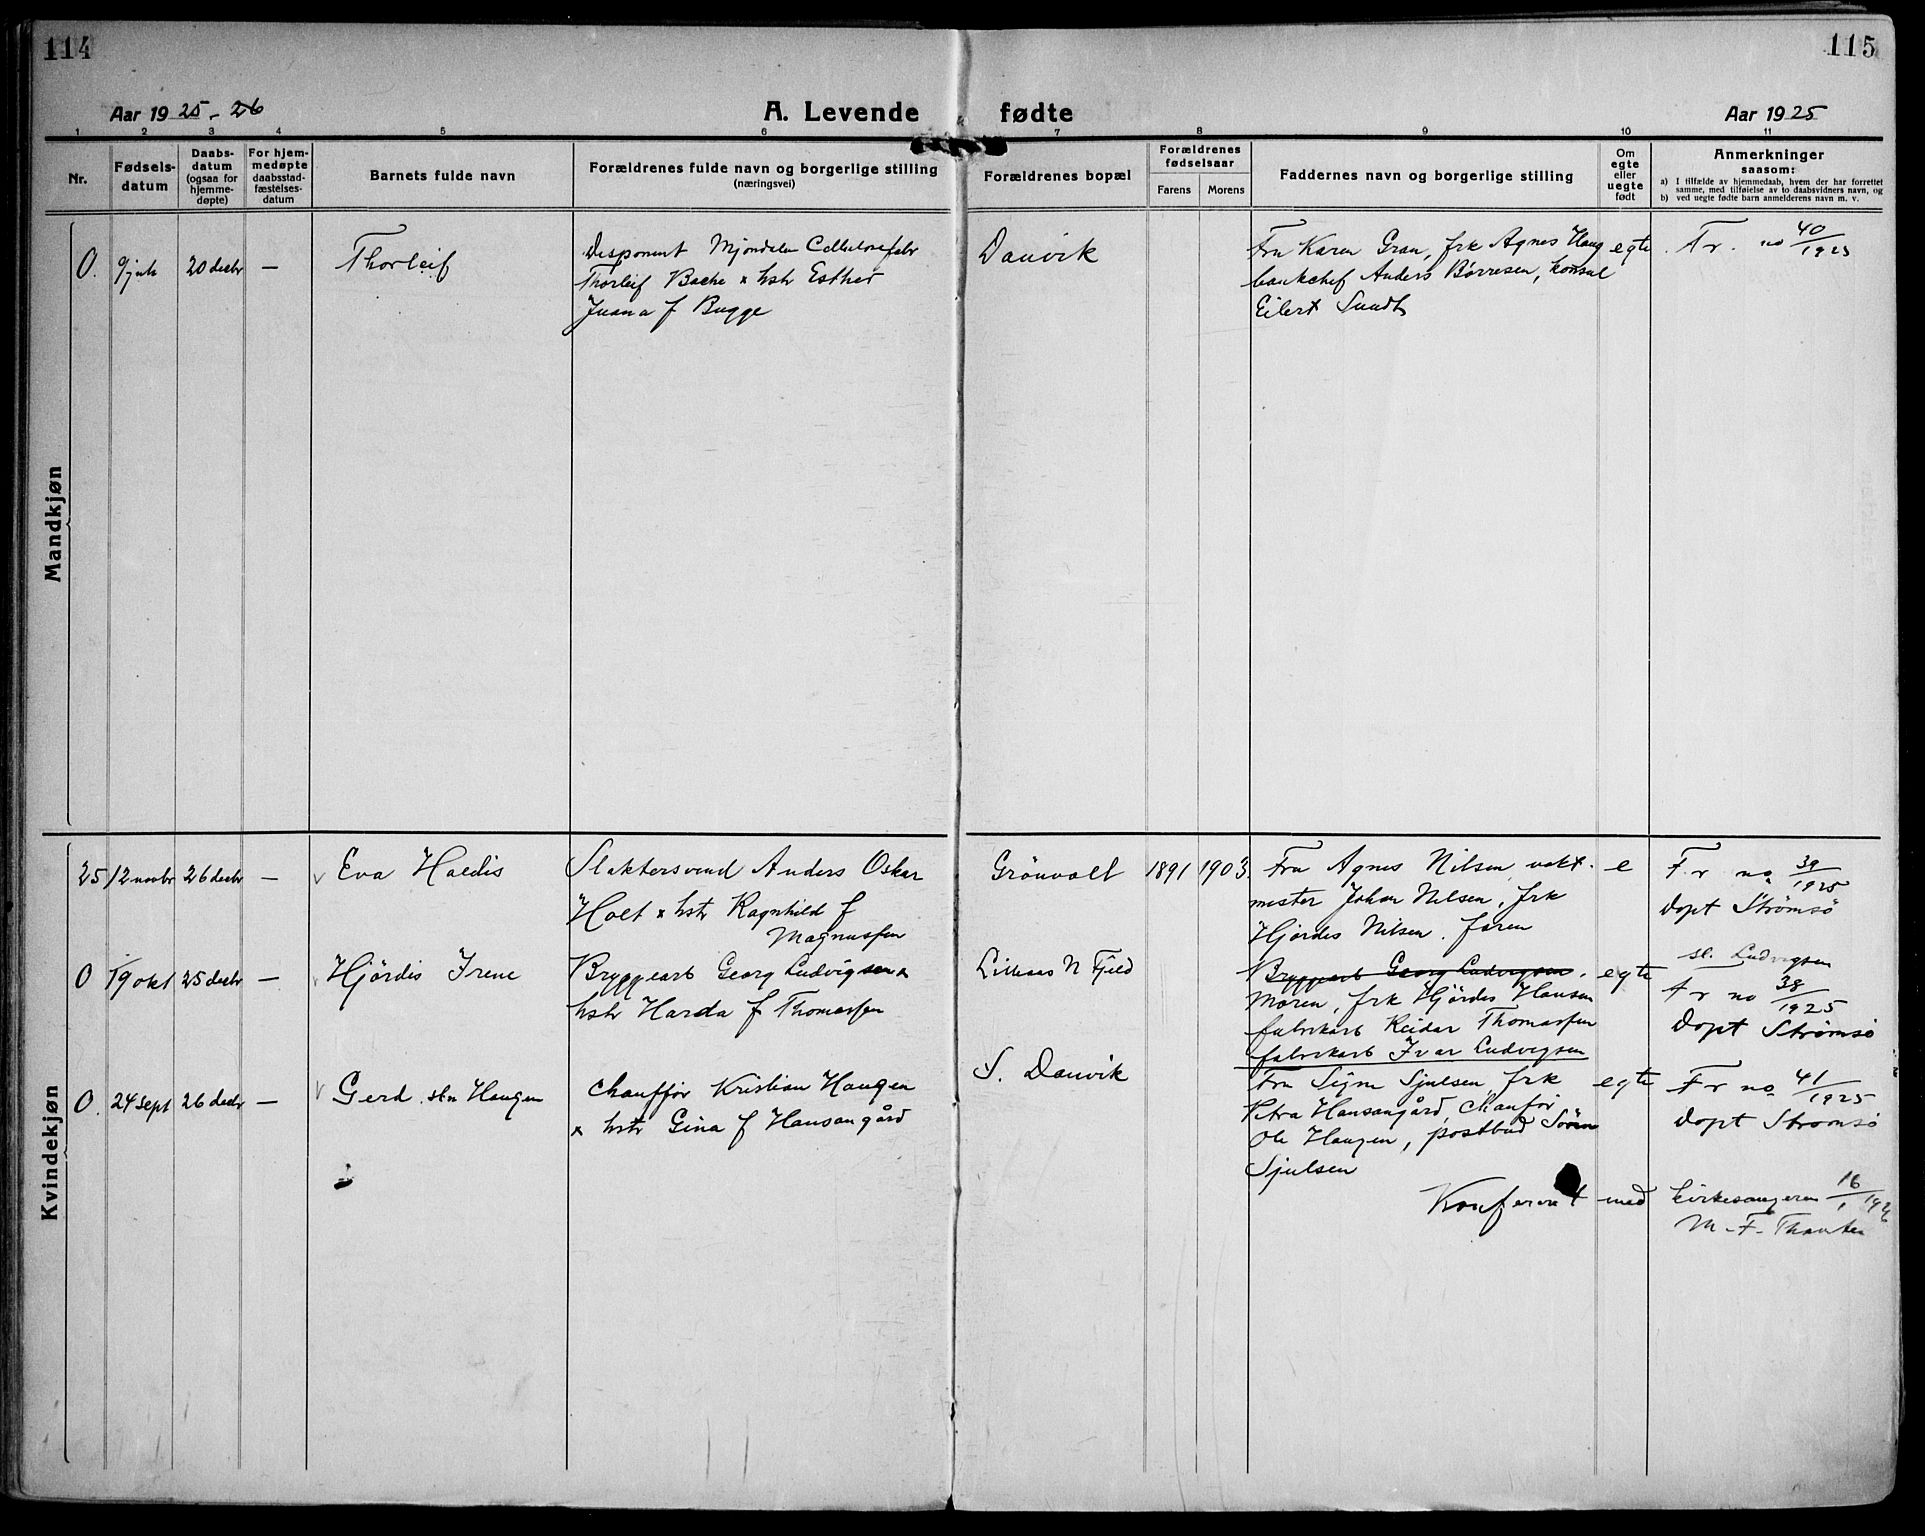 114
115
Aar 1925-26
A. Levende fødte
Aar 1925
1 2 3 4 5 6 7 8 9 10 11
Nr.
Fødsels-
datum
Daabs-
datum
(ogsaa for
hjemme-
døpte)
For hjem-
medøpte
daabsstad-
fæstelses-
datum
Barnets fulde navn
Forældrenes fulde navn og borgerlige stilling
(næringsvei)
Forældrenes bopæl
Forældrenes
fødselsaar
Farens Morens
Faddernes navn og borgerlige stilling
Om
egte
eller
uegte
født
Anmerkninger
saasom:
a) I tilfælde av hjemmedaab, hvem der har forrettet
samme, med tilføielse av to daabsvidners navn, og
b) ved uegte fødte barn anmelderens navn m. v.
Mandkjøn
0. 9 juli 20 decbr — Thorleif
Disponent Mjøndalen Cellulosefabr
Thorleif Bache x hstr Esther
Juana f Bugge
Danvik
Fru Karen Gran, frk Agnes Haug
bankchef Anders Børresen, konsul
Eilert Sundt
egte
Fr. no 40/1925
Kvindekjøn
25 12 novbr 26 decbr — v Eva Haldis
Slaktersvend Anders Oskar
Holt x hstr Ragnhild f
Magnussen
Grönvolt 1891 1903.
Fru Agnes Nilsen, vakt-
mester Johan Nilsen, frk
Hjördis Nilsen. faren
e
Fr no 39/1925
döpt Strömsö
0 19 okt 25 decbr — v Hjördis Irene
Bryggearb Georg Ludvigsen x
hstr Harda f Thomassen
Lilleaas N Fjeld
Bryggearb Georg Ludvigsen.
Moren, frk Hjördis Hansen
fabrikarb Reidar Thomassen
fabrikarb Ivar Ludvigsen
egte
sl. Ludvigsen
Fr no 38/1925
Döpt Strömsö
0. 24 sept 26 decbr — v Gerd. sln Haugen
Chauffør Kristian Haugen
x hstr Gina f Hansangård
S. Danvik
Fru Signe Sjulsen, frk
Petra Hansangård, Chaufør
Ole Haugen, postbud Sören
Sjulsen
egte
Fr no 41/1925
Döpt Strömsö
Konferert med kirkesangeren 16/1 1926
M. F.